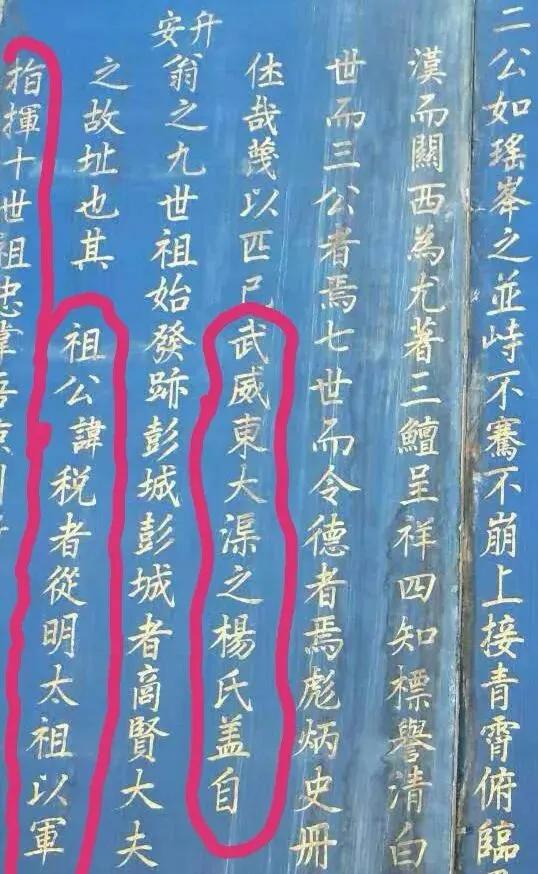 二公如瑤峯之並峙不騫不崩上接青霄俯臨
漢而關西為尤著三鱣呈祥四知標譽清白
世而三公者焉七世而令德者焉彪炳史冊
哉蔑以匹已武威東大渠之楊氏盖自
升安翁之九世祖始發跡彭城彭城者商賢大夫
之故址也其祖公諱税者從明太祖以軍
指揮十世祖忠諱